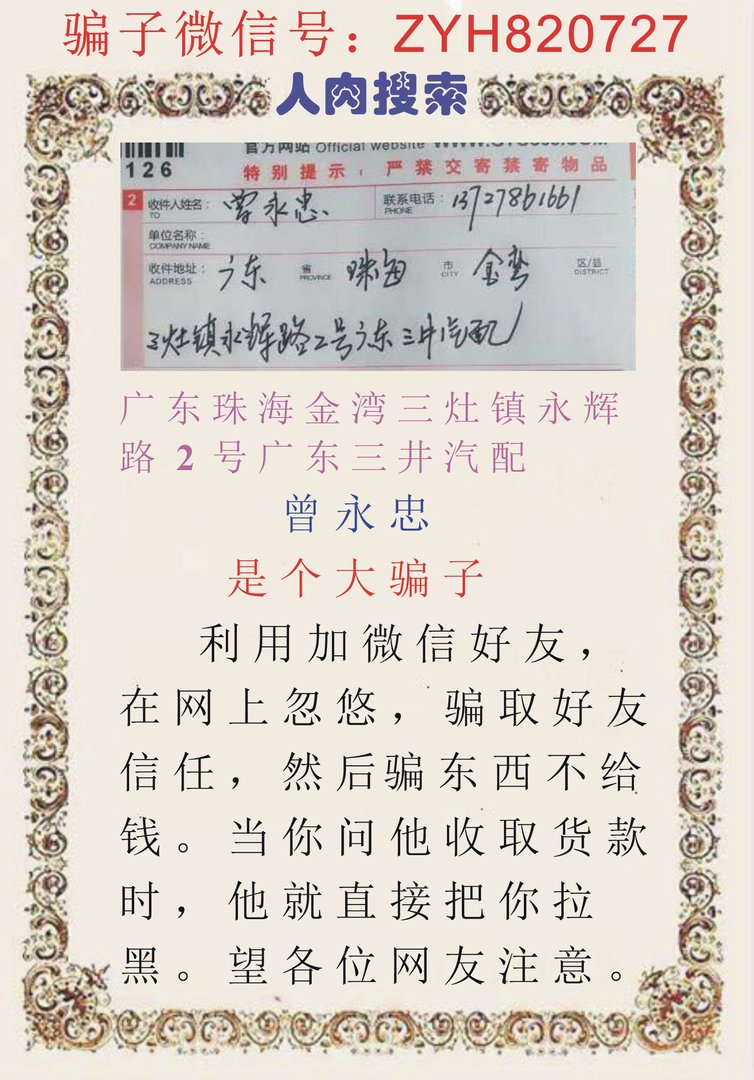 骗子微信号：ZYH820727
人肉搜索
官方网站 Official website
126 特别提示：严禁交寄禁寄物品
2 收件人姓名： TO 曾永忠 联系电话： PHONE 13727861661
单位名称： COMPANY NAME
收件地址： ADDRESS 广东 省 PROVINCE 珠海 市 CITY 金湾 区/县 DISTRICT
三灶镇永辉路2号广东三井汽配
广东珠海金湾三灶镇永辉
路2号广东三井汽配
曾永忠
是个大骗子
利用加微信好友，
在网上忽悠，骗取好友
信任，然后骗东西不给
钱。当你问他收取货款
时，他就直接把你拉
黑。望各位网友注意。